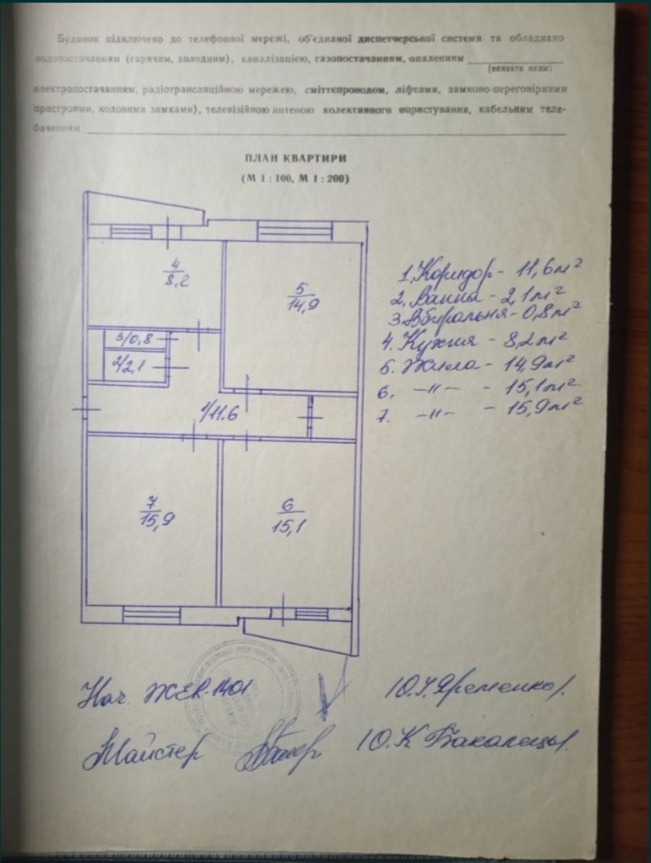 Будинок підключено до телефонної мережі, об'єднаної диспетчерської системи та обладнано
водопостачанням (гарячим, холодним), каналізацією, газопостачанням, опаленням
(вказати яким)
електропостачанням, радіотрансляційною мережею, сміттєпроводом, ліфтами, замково-переговорними
пристроями, кодовими замками), телевізійною антеною колективного користування, кабельним теле-
баченням
ПЛАН КВАРТИРИ
(М 1 : 100, М 1 : 200)
4
8,2
5
14,9
3/0,8
2/2,1
1/11.6
7
15,9
6
15,1
1. Коридор - 11,6 м²
2. Ванна - 2,1 м²
3. Вбиральня - 0,8 м²
4. Кухня - 8,2 м²
5. Жила - 14,9 м²
6. -"- - 15,1 м²
7. -"- - 15,9 м²
Нач. ЖЕК-1401 Ю.І. Яременко
Майстер Ю.К